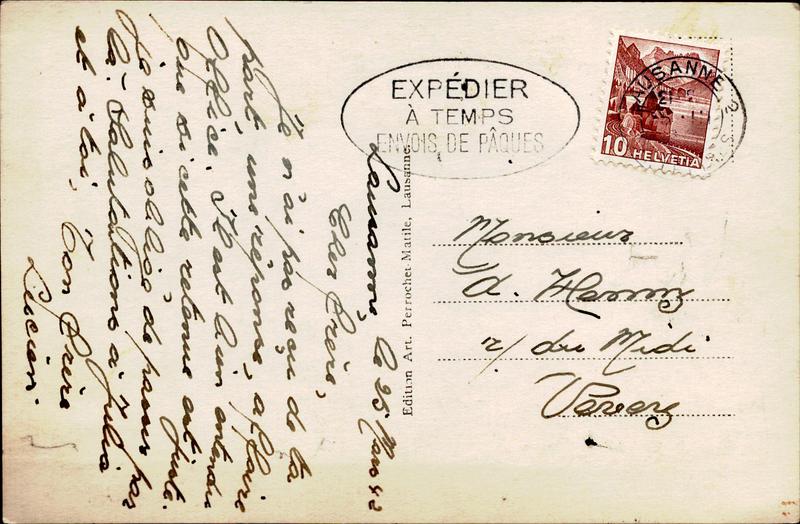 EXPÉDIER
À TEMPS
ENVOIS DE PÂQUES
LAUSANNE
10 HELVETIA
Edition Art. Perrochet-Matile, Lausanne
Lausanne, le 25 Mars 42
Cher frère,
Je n'ai pas reçu de ta
part une réponse, affaire
Office. Il est bien entendu
que si cette retenue est juste
Je suis obligé de passer par
là. Salutations à Julia
et à toi, Ton frère
Lucien
Monsieur
r/ du Midi
Vevey